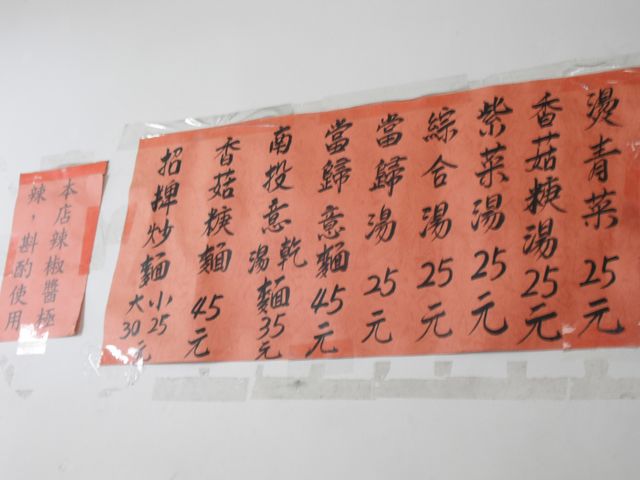 燙青菜 25元
香菇粳湯 25元
紫菜湯 25元
綜合湯 25元
當歸湯 25元
當歸意麵 45元
南投意乾湯麵 35元
香菇粳麵 45元
招牌炒麵 小25 大30元
本店辣椒醬極
辣，斟酌使用